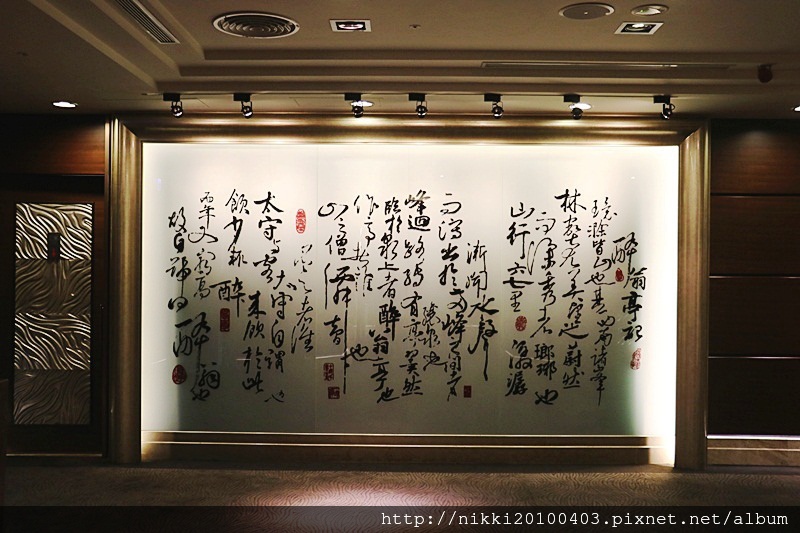 醉翁亭記
環滁皆山也其西南諸峰
林壑尤美望之蔚然
而深秀者瑯琊也
山行六七里
漸聞水聲
潺潺
而瀉出於兩峰之間者
釀泉也
峰迴路轉有亭翼然
臨於泉上者醉翁亭也
作亭者誰
山之僧
名之者誰
太守自謂也
太守與客
來飲於此
飲少輒醉
而年又最高
故自號曰醉翁也
http://nikki20100403.pixnet.net/album